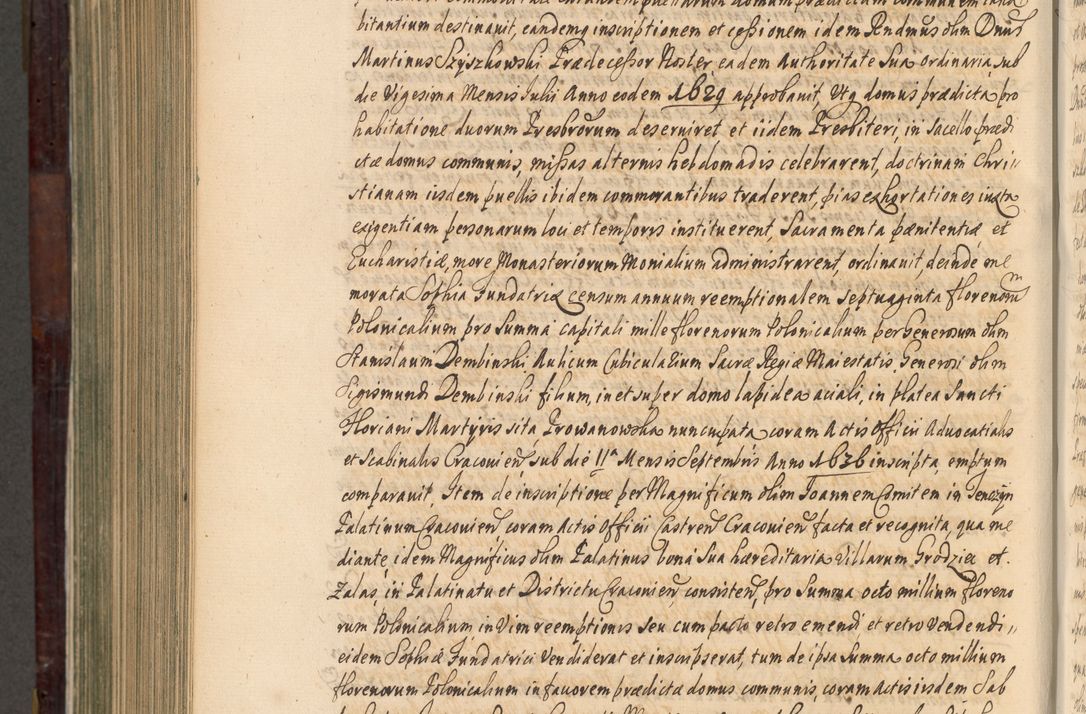 bitantium destinauit, eandemq inscriptionem et cessionem idem Rndmus olim Dnus
Martinus Szyszkowski Prædecessor Noster eadem Authoritate sua ordinaria, sub
die Vigesima Mensis Iulii Anno eodem 1629 approbauit, Utq domus prædicta pro
habitatione duorum Presbrorum deseruiret et iidem Presbiteri, in sacello prædi
ctæ domus communis, missas alternis hebdomadis celebrarent, doctrinam Chri„
stianam iisdem puellis ibidem commorantibus traderent, pias exhortationes iuxta
exigentiam personarum loci et temporis instituerent, Sacramenta pænitentiæ et
Eucharistiæ, more Monasteriorum Monialium administrarent, ordinauit, deinde me
morata Sophia Fundatrix censum annuum reemptionalem septuaginta florenorum
Polonicalium pro summa capitali mille florenorum Polonicalium per Generosum olim
Stanislaum Dembinski Aulicum Cubicularium Sacræ Regiæ Maiestatis, Generosi olim
Sigismundi Dembinski filium, in et super domo lapidea aciali, in platea Sancti
Floriani Martyris sita, Prowanowska nuncupata, coram Actis Officii Aduocatialis
et Scabinalis Cracouien, sub die 11ᵃ Mensis Septembris Anno 1636 inscripta, emptum
comparauit, Item de inscriptione per Magnificum olim Ioannem Comitem in Tenczyn
Palatinum Cracouien, coram Actis Officii Castren Cracouien facta et recognita, qua me
diante, idem Magnificus olim Palatinus bona sua hæreditaria Villarum Grodziec et
Zalas, in Palatinatu et Districtu Cracouien, consisten, pro summa octo millium floreno
rum Polonicalium, in Vim reemptionis seu cum pacto retro emendi et retro Vendendi„
eidem Sophiæ Fundatrici Vendiderat et inscripserat, tum de ipsa summa octo millium
florenorum Polonicalium in fauorem prædictæ domus communis, coram Actis iisdem Sab